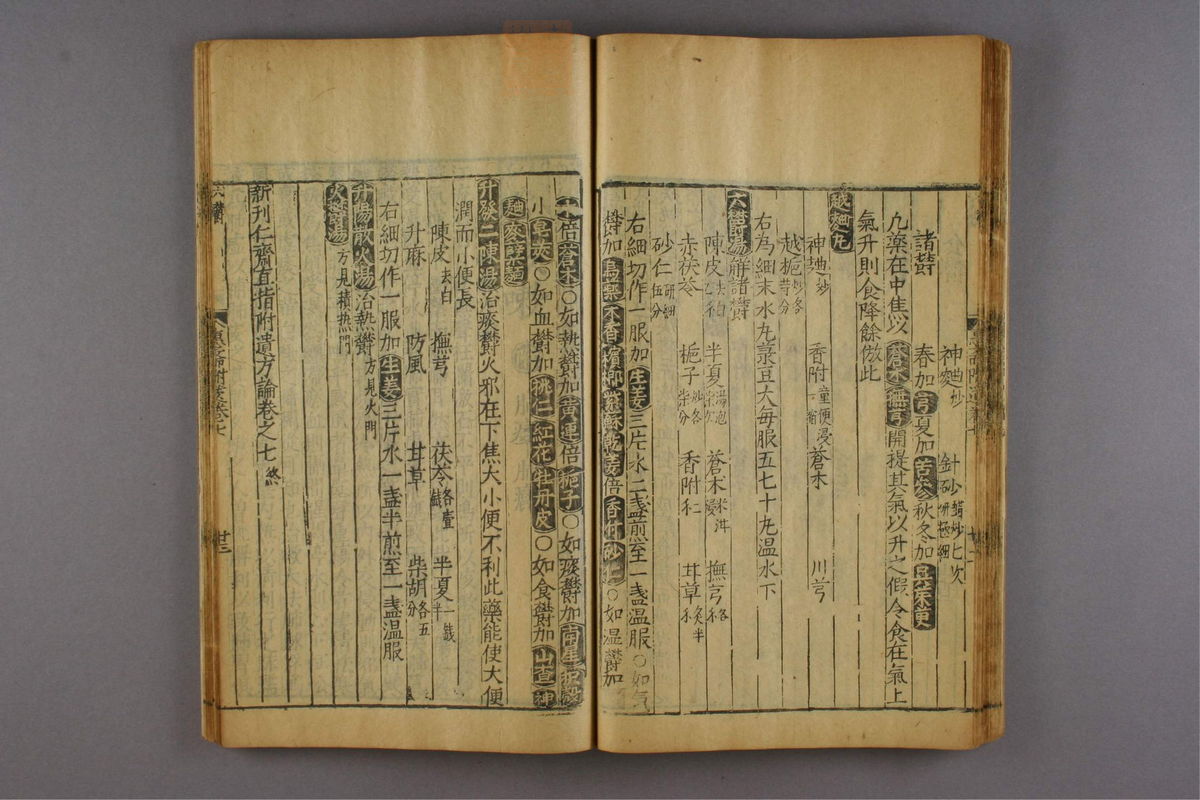 神麯炒 針砂醋炒七次研極細
諸欝 春加芎夏加苦參秋冬加吳茱萸
凡藥在中焦以蒼朮撫芎開提其氣以升之假令食在氣上
氣升則食降餘倣此
越麯丸
神麯炒 香附童便浸一宿 蒼朮 川芎
越梔炒各等分
右為細末水丸菉豆大每服五七十丸温水下
六欝湯 解諸欝
陳皮去白 半夏湯泡 蒼朮米泔浸 撫芎
赤茯苓 梔子炒各 香附 甘草炙半
砂仁研細伍分
右細切作一服加生姜三片水二盞煎至一盞温服○如氣
欝加烏藥木香檳榔紫蘇乾姜倍香附砂仁○如湿欝加
倍蒼朮○如熱欝加黃連倍梔子○如痰欝加南星枳殼
小皂莢○如血欝加桃仁紅花牡丹皮○如食欝加山查神
麯麥蘖麵
升發二陳湯治痰欝火邪在下焦大小便不利此藥能使大便
潤而小便長
陳皮去白 撫芎 茯苓各壹錢 半夏一錢半
升麻 防風 甘草 柴胡各五分
右細切作一服加生姜三片水一盞半煎至一盞温服
升陽散火湯治熱欝方見火門
火欝湯方見積热門
新刊仁齋直指附遺方論卷之七 終
六欝
廿三